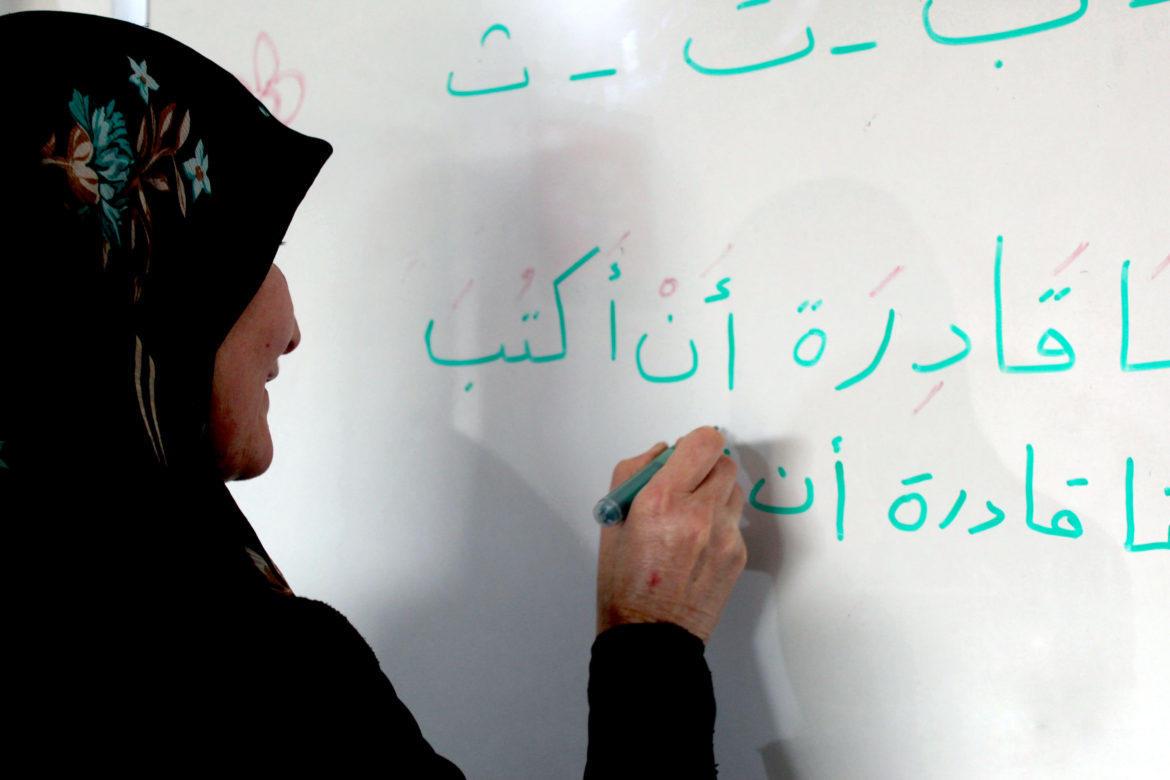 ب - ت - ث
قَادِرَة أَنْ أَكتُبَ
قادرة أن